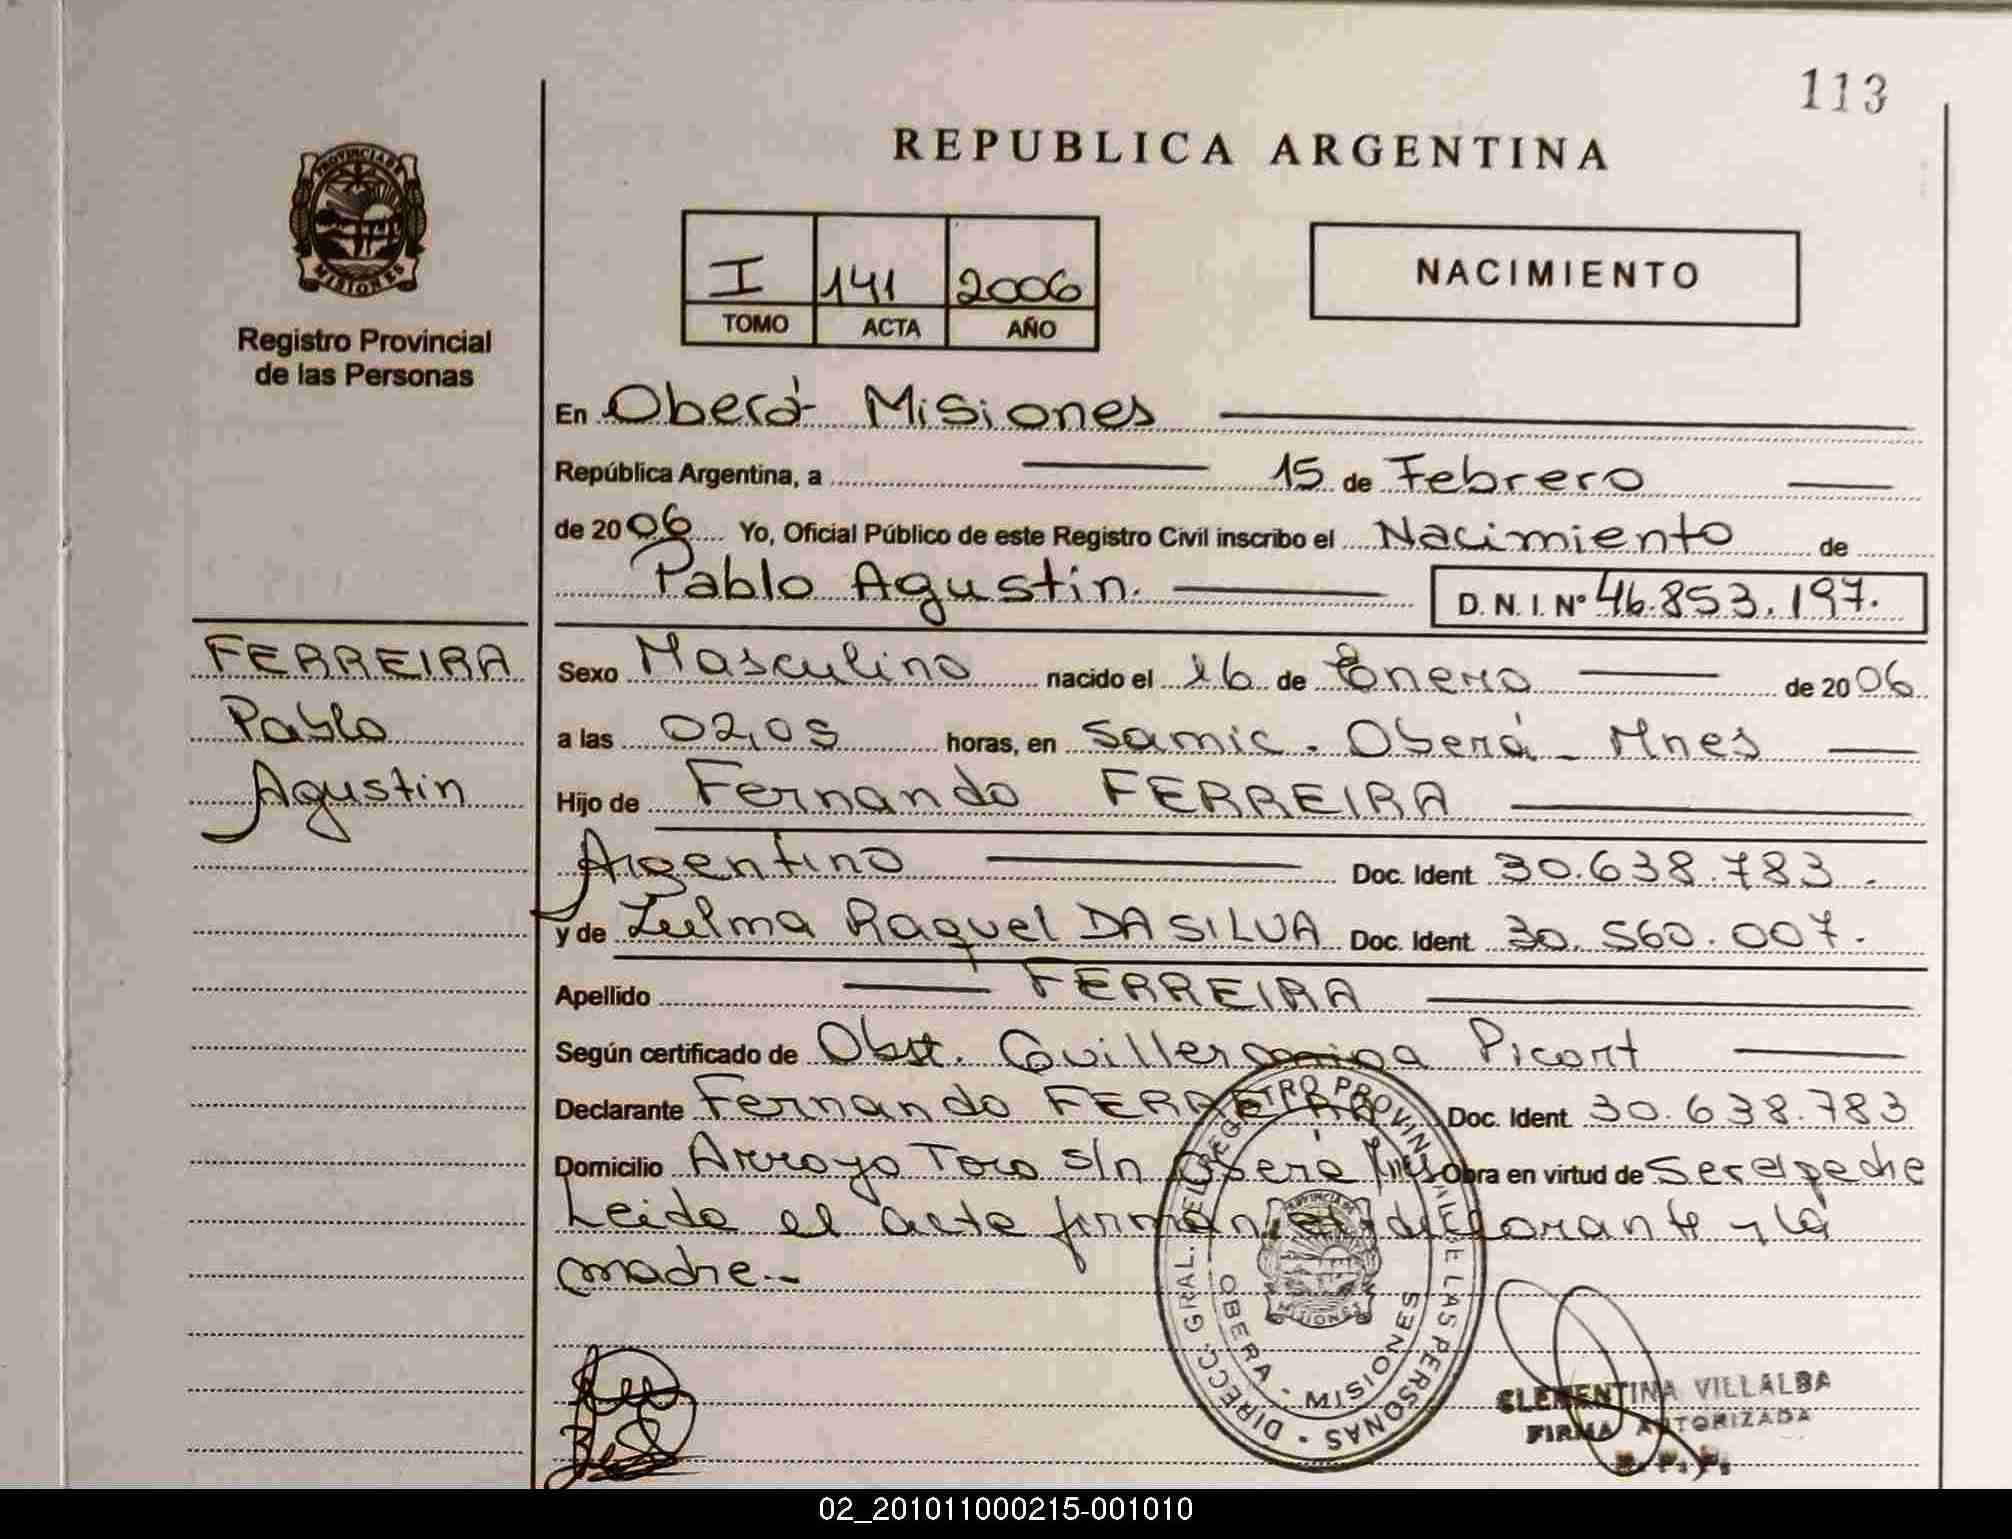 113
REPUBLICA ARGENTINA
PROVINCIA DE
MISIONES
Registro Provincial
de las Personas
I 141 2006
TOMO ACTA AÑO
NACIMIENTO
En Oberá Misiones
República Argentina, a 15 de Febrero
de 2006 Yo, Oficial Público de este Registro Civil inscribo el Nacimiento de
Pablo Agustin. D. N. I. Nº 46.853.197.
FERREIRA
Pablo
Agustin
Sexo Masculino nacido el 16 de Enero de 2006
a las 02,05 horas, en Samic. Oberá - Mnes
Hijo de Fernando FERREIRA
Argentino Doc. Ident. 30.638.783.
y de Zulma Raquel DA SILVA Doc. Ident. 30.560.007.
Apellido FERREIRA
Según certificado de Obst. Guillermina Picort
Declarante Fernando FERREIRA Doc. Ident. 30.638.783
Domicilio Arroyo Toro s/n Oberá Mnes Obra en virtud de
Leida el acta firman el declarante y la
madre.-
DIRECC. GRAL. DEL REGISTRO PROVINCIAL DE LAS PERSONAS
OBERA - MISIONES
PROVINCIA DE
MISIONES
CLEMENTINA VILLALBA
FIRMA AUTORIZADA
R. P. P.
02_201011000215-001010